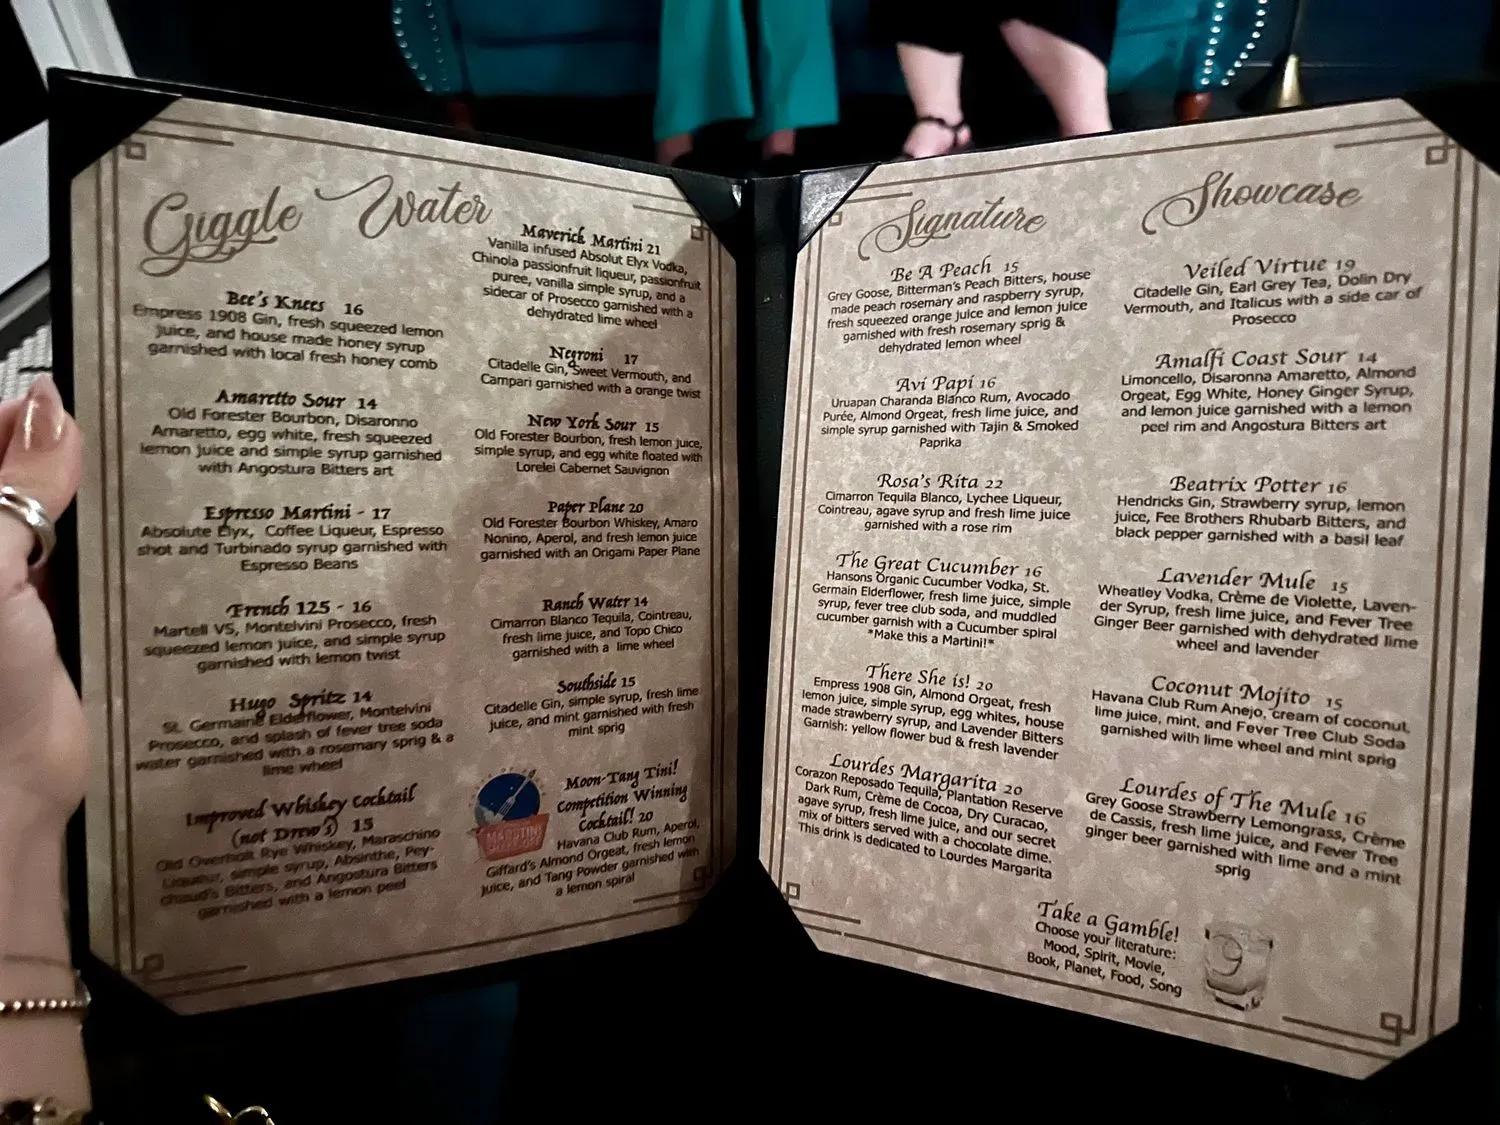 Giggle Water
Bee's Knees 16
Empress 1908 Gin, fresh squeezed lemon
juice, and house made honey syrup
garnished with local fresh honey comb
Amaretto Sour 14
Old Forester Bourbon, Disaronno
Amaretto, egg white, fresh squeezed
lemon juice and simple syrup garnished
with Angostura Bitters art
Espresso Martini - 17
Absolute Elyx, Coffee Liqueur, Espresso
shot and Turbinado syrup garnished with
Espresso Beans
French 125 - 16
Martell VS, Montelvini Prosecco, fresh
squeezed lemon juice, and simple syrup
garnished with lemon twist
Hugo Spritz 14
St. Germaine Elderflower, Montelvini
Prosecco, and splash of fever tree soda
water garnished with a rosemary sprig & a
lime wheel
Improved Whiskey Cocktail
(not Drew's) 15
Old Overholt Rye Whiskey, Maraschino
Liqueur, simple syrup, Absinthe, Pey-
chaud's Bitters, and Angostura Bitters
garnished with a lemon peel
Maverick Martini 21
Vanilla infused Absolut Elyx Vodka,
Chinola passionfruit liqueur, passionfruit
puree, vanilla simple syrup, and a
sidecar of Prosecco garnished with a
dehydrated lime wheel
Negroni 17
Citadelle Gin, Sweet Vermouth, and
Campari garnished with a orange twist
New York Sour 15
Old Forester Bourbon, fresh lemon juice,
simple syrup, and egg white floated with
Lorelei Cabernet Sauvignon
Paper Plane 20
Old Forester Bourbon Whiskey, Amaro
Nonino, Aperol, and fresh lemon juice
garnished with an Origami Paper Plane
Ranch Water 14
Cimarron Blanco Tequila, Cointreau,
fresh lime juice, and Topo Chico
garnished with a lime wheel
Southside 15
Citadelle Gin, simple syrup, fresh lime
juice, and mint garnished with fresh
mint sprig
Moon-Tang Tini!
Competition Winning
Cocktail! 20
Havana Club Rum, Aperol,
Giffard's Almond Orgeat, fresh lemon
juice, and Tang Powder garnished with
a lemon spiral
Signature Showcase
Be A Peach 15
Grey Goose, Bitterman's Peach Bitters, house
made peach rosemary and raspberry syrup,
fresh squeezed orange juice and lemon juice
garnished with fresh rosemary sprig &
dehydrated lemon wheel
Avi Papi 16
Uruapan Charanda Blanco Rum, Avocado
Purée, Almond Orgeat, fresh lime juice, and
simple syrup garnished with Tajin & Smoked
Paprika
Rosa's Rita 22
Cimarron Tequila Blanco, Lychee Liqueur,
Cointreau, agave syrup and fresh lime juice
garnished with a rose rim
The Great Cucumber 16
Hansons Organic Cucumber Vodka, St.
Germain Elderflower, fresh lime juice, simple
syrup, fever tree club soda, and muddled
cucumber garnish with a Cucumber spiral
*Make this a Martini!*
There She is! 20
Empress 1908 Gin, Almond Orgeat, fresh
lemon juice, simple syrup, egg whites, house
made strawberry syrup, and Lavender Bitters
Garnish: yellow flower bud & fresh lavender
Lourdes Margarita 20
Corazon Reposado Tequila, Plantation Reserve
Dark Rum, Crème de Cocoa, Dry Curacao,
agave syrup, fresh lime juice, and our secret
mix of bitters served with a chocolate dime.
This drink is dedicated to Lourdes Margarita
Veiled Virtue 19
Citadelle Gin, Earl Grey Tea, Dolin Dry
Vermouth, and Italicus with a side car of
Prosecco
Amalfi Coast Sour 14
Limoncello, Disaronna Amaretto, Almond
Orgeat, Egg White, Honey Ginger Syrup,
and lemon juice garnished with a lemon
peel rim and Angostura Bitters art
Beatrix Potter 16
Hendricks Gin, Strawberry syrup, lemon
juice, Fee Brothers Rhubarb Bitters, and
black pepper garnished with a basil leaf
Lavender Mule 15
Wheatley Vodka, Crème de Violette, Laven-
der Syrup, fresh lime juice, and Fever Tree
Ginger Beer garnished with dehydrated lime
wheel and lavender
Coconut Mojito 15
Havana Club Rum Anejo, cream of coconut,
lime juice, mint, and Fever Tree Club Soda
garnished with lime wheel and mint sprig
Lourdes of The Mule 16
Grey Goose Strawberry Lemongrass, Crème
de Cassis, fresh lime juice, and Fever Tree
ginger beer garnished with lime and a mint
sprig
Take a Gamble!
Choose your literature:
Mood, Spirit, Movie,
Book, Planet, Food, Song
9